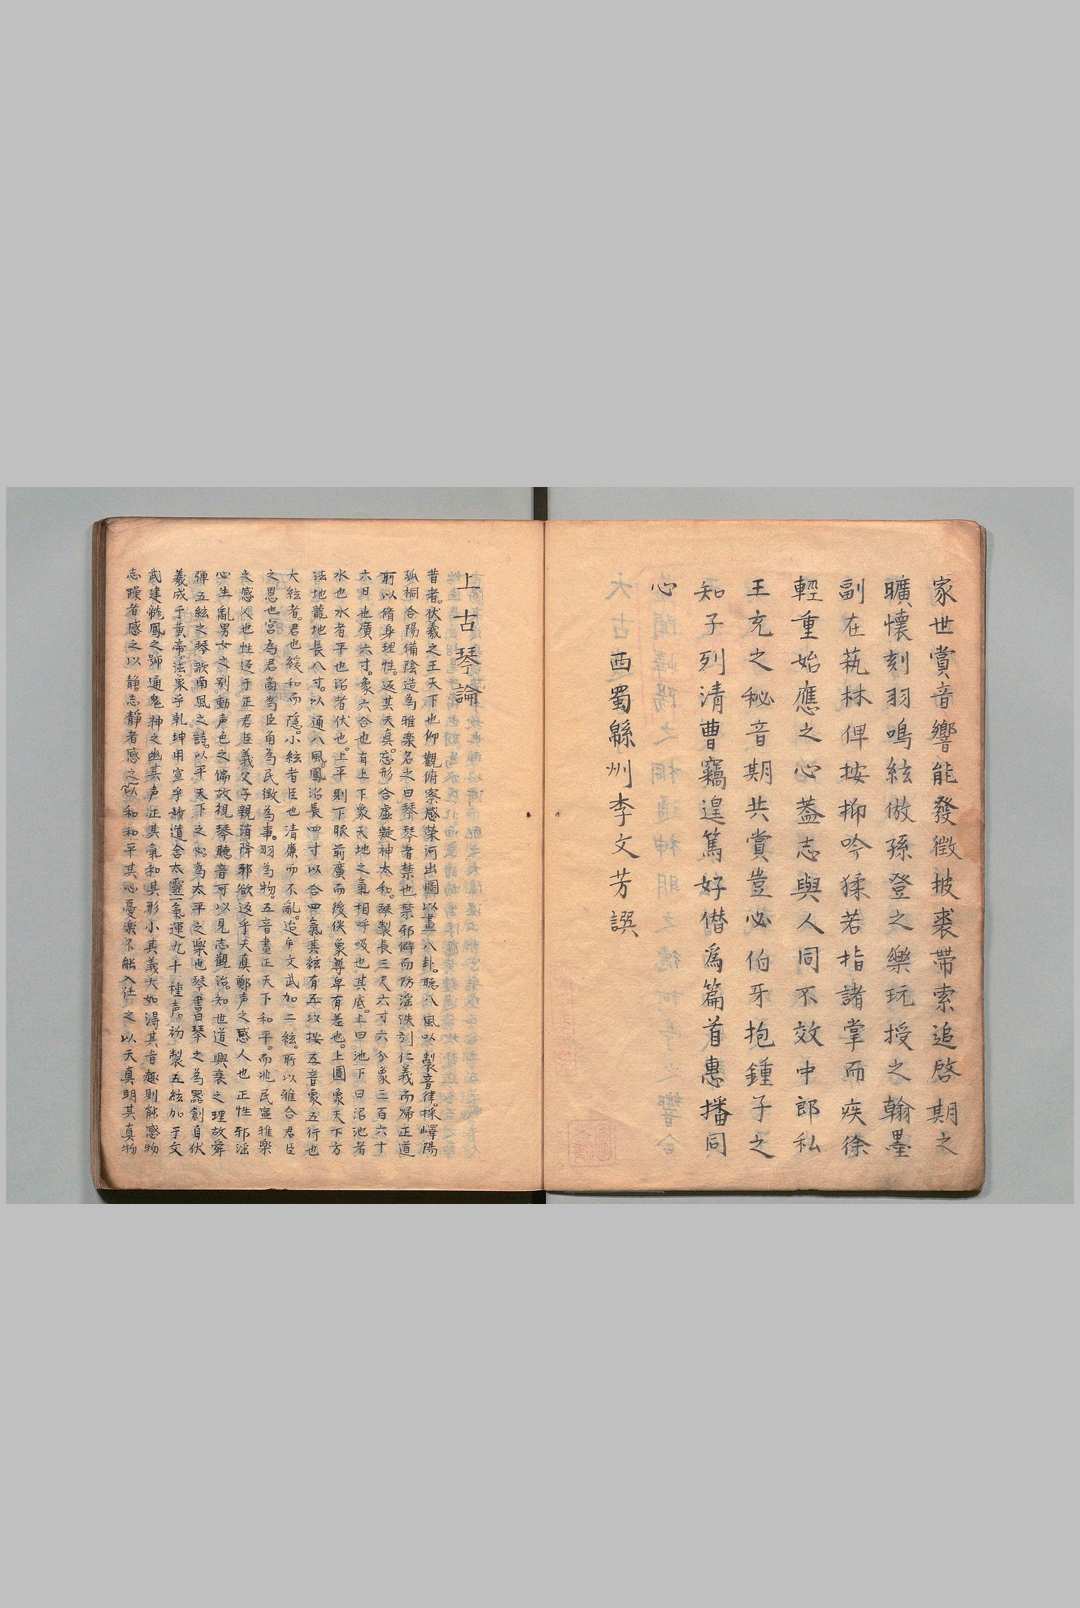 家世賞音響能發徵披裘帶索追啓期之
曠懷刻羽鳴絃倣孫登之樂玩授之翰墨
副在蓺林俾按抑吟猱若指諸掌而疾徐
輕重始應之心蓋志與人同不效中郎私
王充之秘音期共賞豈必伯牙抱鍾子之
知子列清曹竊遑篤好僣為篇首惠播同
心
西蜀緜州李文芳譔
上古琴論
昔者伏羲之王天下也仰觀俯察感榮河出圖以畫八卦聽八風以製音律採嶧陽
孤桐合陽備陰造為雅樂名之曰琴琴者禁也禁邪僻而防淫佚引仁義而歸正道
所以脩身理性返其天真忘形合虛凝神太和琴製長三尺六寸六分象三百六十
六日也廣六寸象六合也有上下象天地之氣相呼吸也其底上曰池下曰沼池者
水也水者平也沼者伏也上平則下服前廣而後俠象尊卑有差也上圓象天下方
法地龍池長八寸以通八風鳳沼長四寸以合四氣其絃有五以按五音象五行也
大絃者君也緩和而隱小絃者臣也清廉而不亂迨乎文武加二絃所以雅合君臣
之恩也宮為君商為臣角為民徵為事羽為物五音畫正天下和平而兆民寧雅樂
之感人也性返于正君臣義父子親消降邪欲返乎天真鄭声之感人也正性邪淫
心生亂男女之別動声色之偽故視琴聽音可以見志觀治知世道興衰之理故舜
彈五絃之琴歌南風之詩以平天下之心為太平之樂也琴書曰琴之為器創自伏
羲成于黃帝法象乎乾坤用宣乎詩道含太靈一氣運九十種声初製五絃加于文
武建龍鳳之號通鬼神之幽其声正其氣和其形小其義大如得其音趣則能感物
志躁者感之以靜志靜者感之以和和平其心憂樂不能入任之以天真明其真物